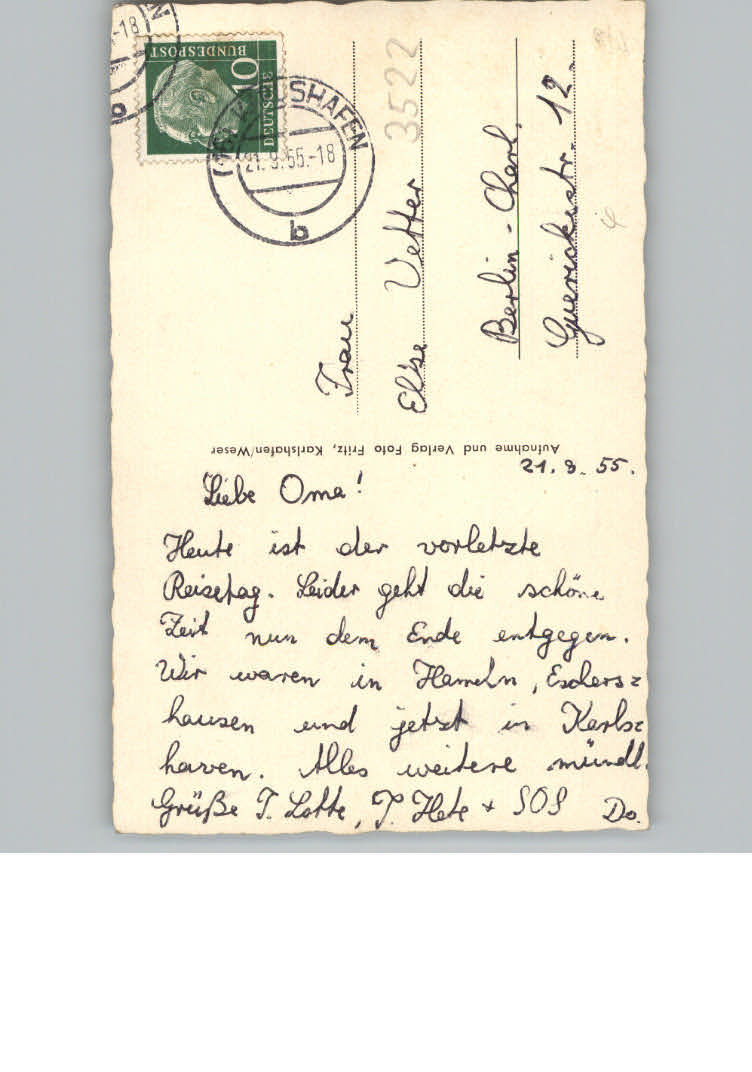 DEUTSCHE
BUNDESPOST
10
SHAFEN
21.9.55.-18
b
-18
b
3522
Frau
Else Vetter
Berlin-Charl.
Guerickestr. 12.
Aufnahme und Verlag Foto Fritz, Karlshafen/Weser
21. 9. 55.
Liebe Oma!
Heute ist der vorletzte
Reisetag. Leider geht die schöne
Zeit nun dem Ende entgegen.
Wir waren in Hameln, Eschers=
hausen und jetzt in Karls=
haven. Alles weitere mündl.
Grüße T. Lotte, T. Hete + SOS Do.